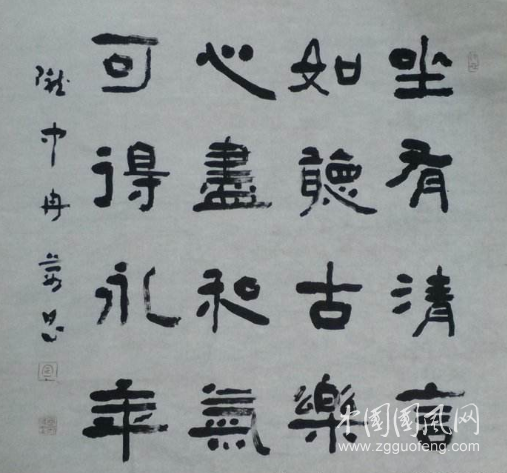 坐有清言
如聽古樂
心盡和氣
可得永年
隴中冉
中国国风网
www.zgguofeng.com